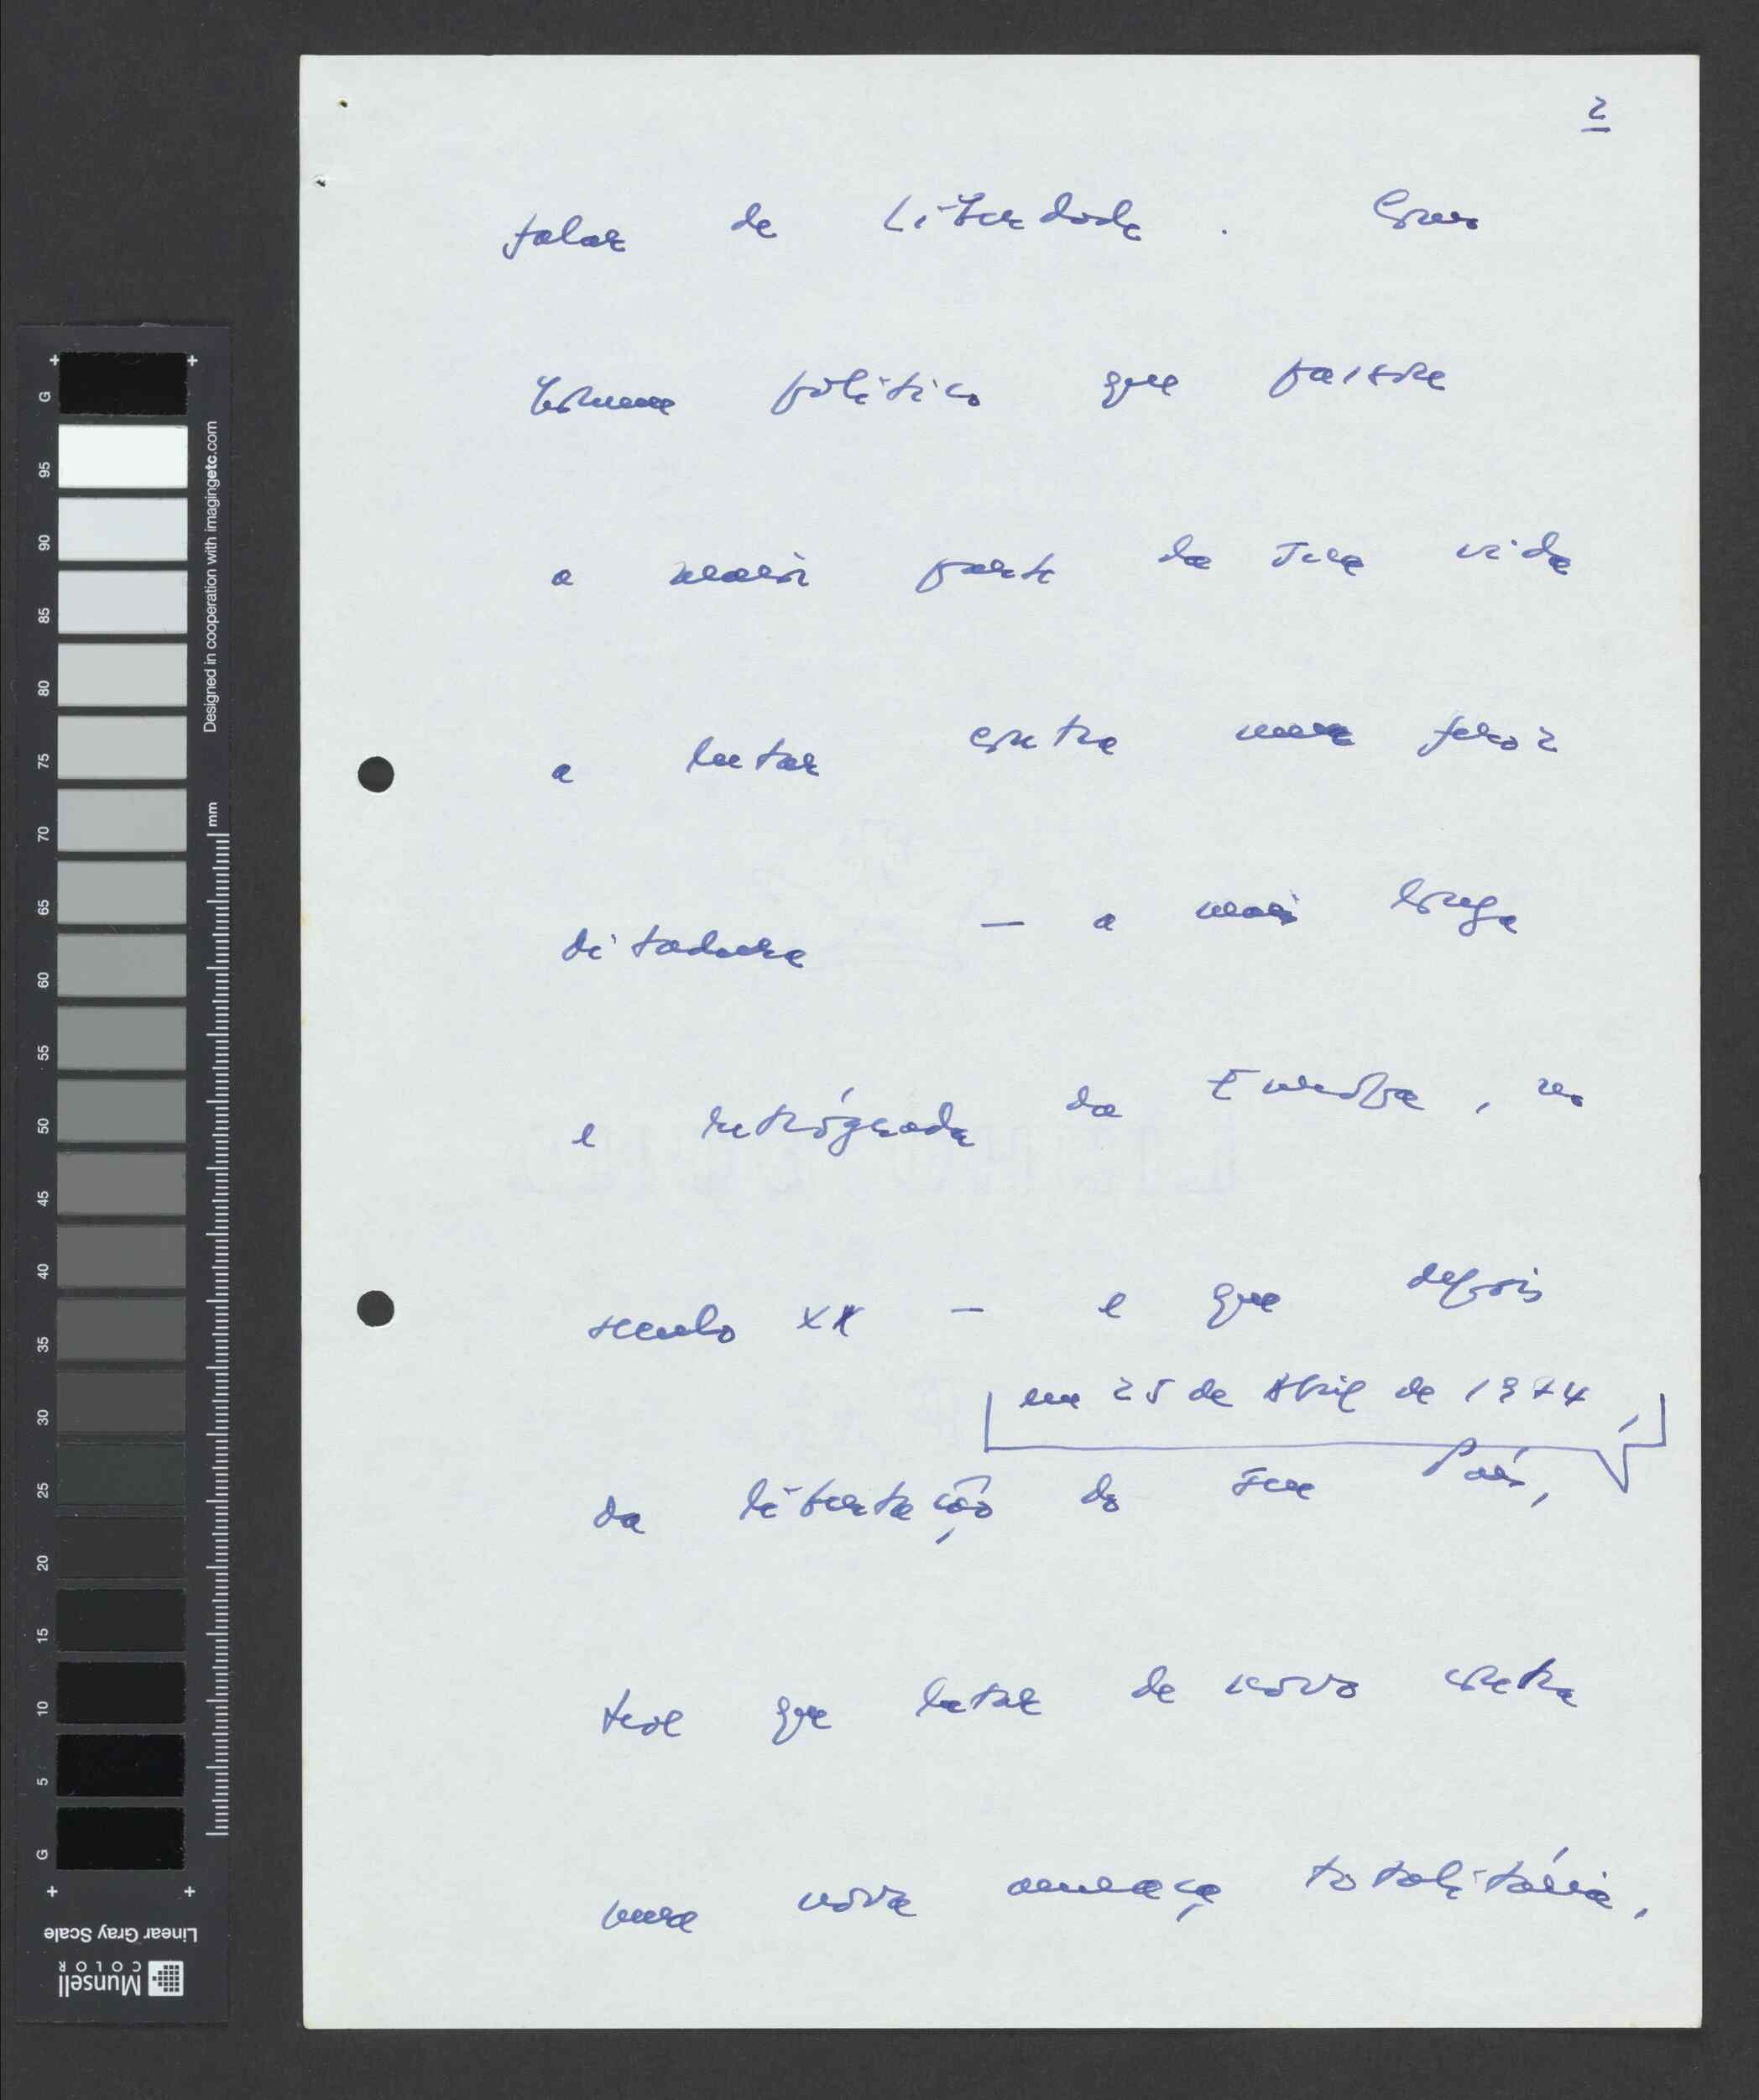 2
falar de Liberdade. Como
homem político que passou
a maior parte da sua vida
a lutar contra uma feroz
ditadura — a mais longa
e retrógrada da Europa, no
século XX — e que depois
em 25 de Abril de 1974,
da libertação do seu País,
teve que lutar de novo contra
uma nova ameaça totalitária,
G
95
90
85
80
75
70
65
60
55
50
45
40
35
30
25
20
15
10
5
G
Designed in cooperation with imagingetc.com
mm
Linear Gray Scale
Munsell
COLOR